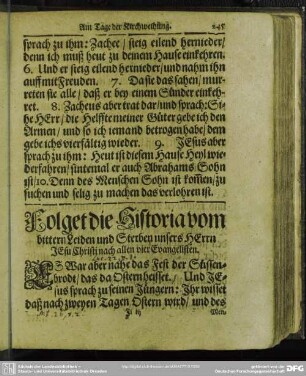 Am Tage der Kirchweihung. 245
sprach zu ihm: Zachee, steig eilend hernieder/
denn ich muß heut zu deinem Hause einkehren.
6. Und er steig eilend hernieder/ und nahm ihn
auff mit Freuden. 7. Da sie das sahen/ mur-
reten sie alle/ daß er bey einem Sünder einkeh-
ret. 8. Zacheus aber trat dar/ und sprach: Si-
he HErr/ die Helffte meiner Güter gebe ich den
Armen/ und so ich iemand betrogen habe/ dem
gebe ichs vierfältig wieder. 9. JEsus aber
sprach zu ihm: Heut ist diesem Hause Heyl wie-
derfahren/ sintemal er auch Abrahams Sohn
ist/ 10. Denn des Menschen Sohn ist kommen/ zu
suchen und selig zu machen das verlohren ist.
Folget die Historia vom
bittern Leiden und Sterben unsers HErrn
JEsu Christi nach allen vier Evangelisten.
ES War aber nahe das Fest der Süssen-
brodt/ das da Ostern heisset. Und JE-
sus sprach zu seinen Jüngern: Ihr wisset
daß nach zweyen Tagen Ostern wird/ und des
Men-